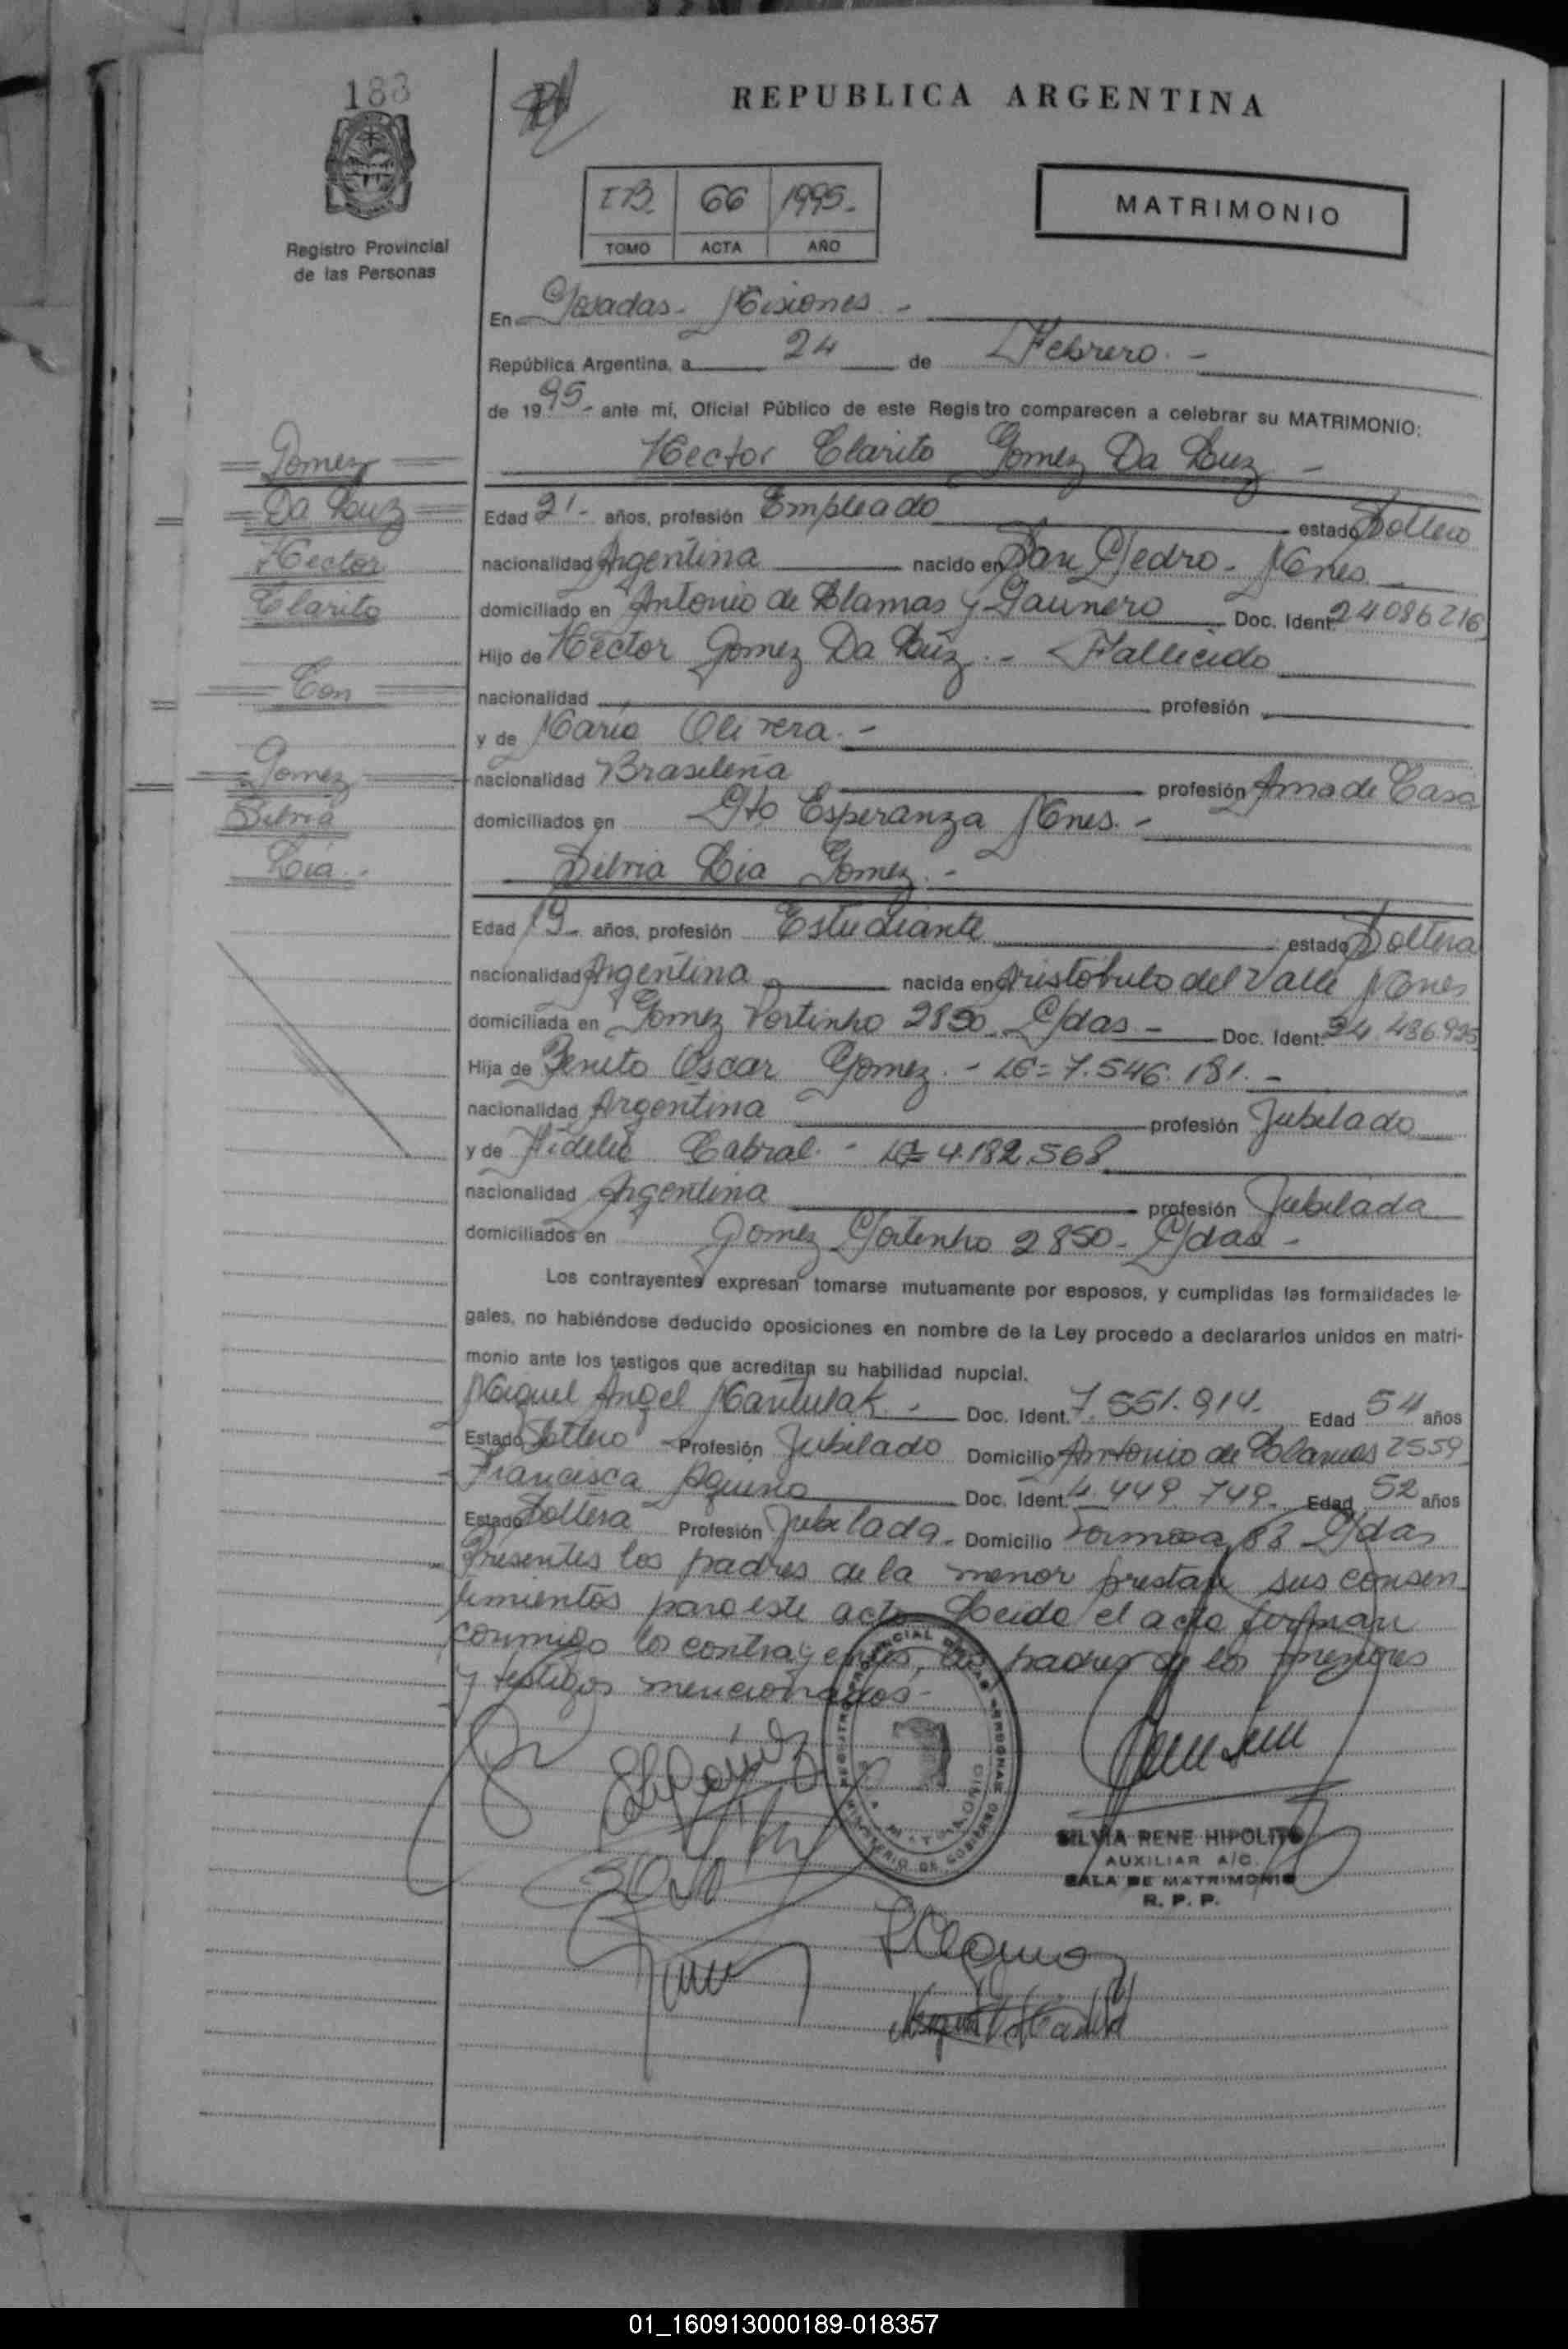 188
REPUBLICA ARGENTINA
Registro Provincial
de las Personas
66 1995.-
TOMO ACTA AÑO
MATRIMONIO
En Posadas - Misiones -
República Argentina, a 24 de Febrero. -
de 1995- ante mí, Oficial Público de este Registro comparecen a celebrar su MATRIMONIO:
Gomez
Da Luz
Hector
Clarito
Con
Gomez
Silvia
Lia.-
Hector Clarito Gomez Da Luz -
Edad 21- años, profesión Empleado estado Soltero
nacionalidad Argentina nacido en San Pedro - Mnes
domiciliado en Antonio de Llamas y Doc. Ident. 24086216
Hijo de Hector Gomez Da Luz. - Fallecido
nacionalidad profesión
y de Maria Olivera. -
nacionalidad Brasileña profesión Ama de Casa
domiciliados en Pto Esperanza Mnes. -
Silvia Lia Gomez. -
Edad 19- años, profesión Estudiante estado Soltera
nacionalidad Argentina nacida en Aristóbulo del Valle Mnes
domiciliada en Gomez Portinho 2850 P/das - Doc. Ident. 24.486.995
Hija de Benito Oscar Gomez. - LE= 7.546.181. -
nacionalidad Argentina profesión Jubilado
y de Cabral. - LC= 4.182.568
nacionalidad Argentina profesión Jubilada
domiciliados en Gomez Portinho 2850 - P/das -
Los contrayentes expresan tomarse mutuamente por esposos, y cumplidas las formalidades le-
gales, no habiéndose deducido oposiciones en nombre de la Ley procedo a declararlos unidos en matri-
monio ante los testigos que acreditan su habilidad nupcial.
Miguel Angel - Doc. Ident. 7.551.914. Edad 54 años
Estado Soltero Profesión Jubilado Domicilio Antonio de Llamas 2559
Francisca Aquino Doc. Ident. 4.449.749. Edad 52 años
Estado Soltera Profesión Jubilada. Domicilio Formosa 88 P/das
Presentes los padres de la menor prestan sus consen
timientos para este acto Leida el acta firman
conmigo los contrayentes, los padres de los menores
y testigos mencionados -
SILVIA RENE HIPOLITO
AUXILIAR A/C.
SALA DE MATRIMONIO
R. P. P.
01_160913000189-018357